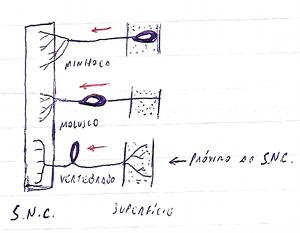 MINHOCA
MOLUSCO
VERTEBRADO
← PRÓXIMO AO S.N.C.
S.N.C.
SUPERFÍCIE